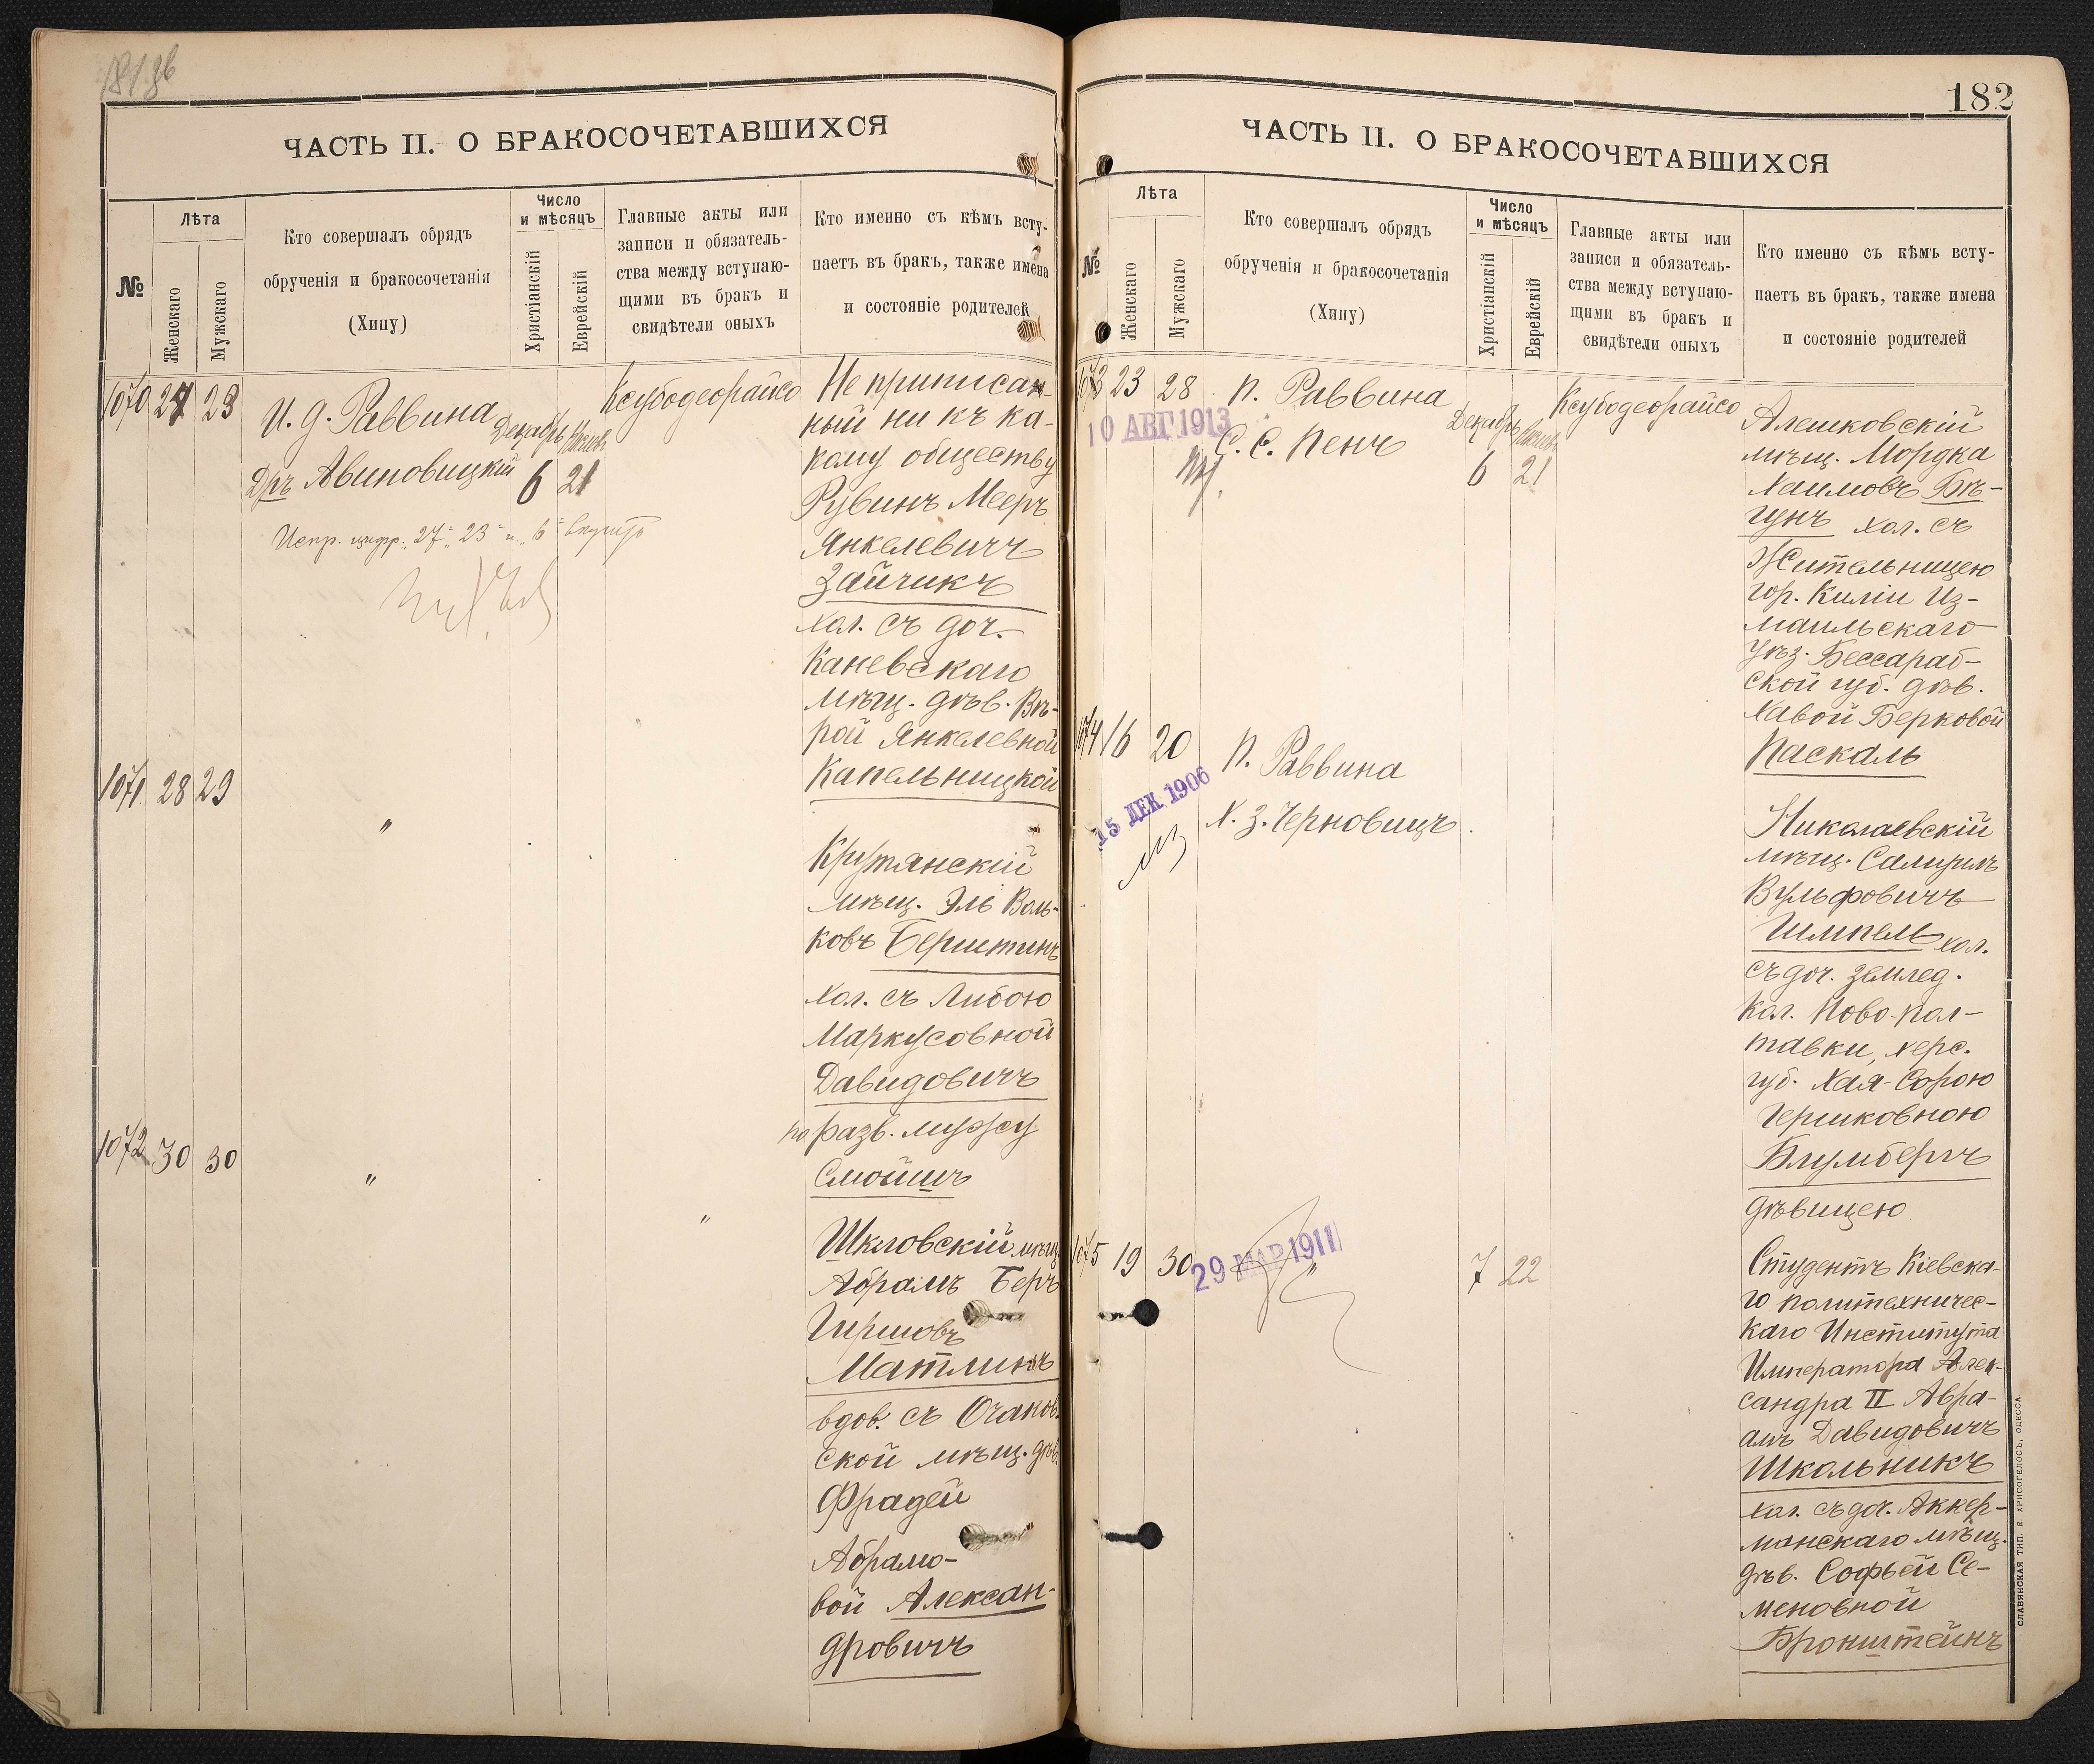 ЧАСТЬ II. О БРАКОСОЧЕТАВШИХСЯ
№
Лѣта
Женскаго
Мужскаго
Кто совершалъ обрядъ
обрученія и бракосочетанія
(Хипу)
Число
и мѣсяцъ
Христіанскій
Еврейскій
Главные акты или
записи и обязатель-
ства между вступаю-
щими въ бракъ и
свидѣтели оныхъ
Кто именно съ кѣмъ всту-
паетъ въ бракъ, также имена
и состояніе родителей
1070 27 23
И. д. Раввина
Дръ Авиновицкій
Декабрь
6 21
Ксубодеорайсо
Испр. цифр. „27" „23" и „6"
Не приписан-
ный ни къ ка-
кому обществу
Рувинъ Мееръ
Янкелевичъ
Зайчикъ
хол. съ доч.
Каневскаго
мѣщ. дѣв. Вѣ-
рой Янкелевной
Капельницкой
1071 28 29
"
Крутянскій
мѣщ. Эль Воль-
ковъ Берштинъ
хол. съ Либою
Маркусовной
Давидовичъ
по разв. мужу
Смойшъ
1072 30 30
"
"
Шкловскій мѣщ.
Абрамъ Беръ
Гиршовъ
Матлинъ
вдов. съ Очаков-
ской мѣщ. дѣв.
Фрадей
Абрамо-
вой Алексан-
дровичъ
182
ЧАСТЬ II. О БРАКОСОЧЕТАВШИХСЯ
№
Лѣта
Женскаго
Мужскаго
Кто совершалъ обрядъ
обрученія и бракосочетанія
(Хипу)
Число
и мѣсяцъ
Христіанскій
Еврейскій
Главные акты или
записи и обязатель-
ства между вступаю-
щими въ бракъ и
свидѣтели оныхъ
Кто именно съ кѣмъ всту-
паетъ въ бракъ, также имена
и состояніе родителей
1073 23 28
10 АВГ 1913
П. Раввина
С. С. Пенъ
Декабрь
6 21
Ксубодеорайсо
Алешковскій
мѣщ. Мордка
Хаимовъ Бѣ-
гунъ хол. съ
Жительницею
гор. Киліи Из-
маильскаго
уѣз. Бессараб-
ской губ. дѣв.
Хавой Берковой
Паскаль
1074 16 20
15 ДЕК 1906
П. Раввина
Х. З. Черновицъ
Николаевскій
мѣщ. Самуилъ
Вульфовичъ
Гимпель хол.
съ доч. землед.
кол. Ново-Пол-
тавки, Херс.
губ. Хая-Сорою
Гершковною
Блумбергъ
дѣвицею
1075 19 30
29 МАР 1911
"
7 22
Студентъ Кіевска-
го политехничес-
каго Института
Императора Алек-
сандра II Авра-
амъ Давидовичъ
Школьникъ
хол. съ доч. Аккер-
манскаго мѣщ.
дѣв. Софьей Се-
меновной
Бронштейнъ
СЛАВЯНСКАЯ ТИП. Е. ХРИСОГЕЛОСЪ, ОДЕССА